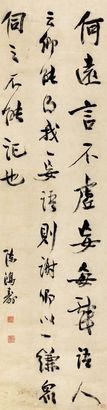 何遠言不虛妄每戲語人
云卿能得我一妄語則謝卿以一縑眾
伺之不能記也
陳鴻壽